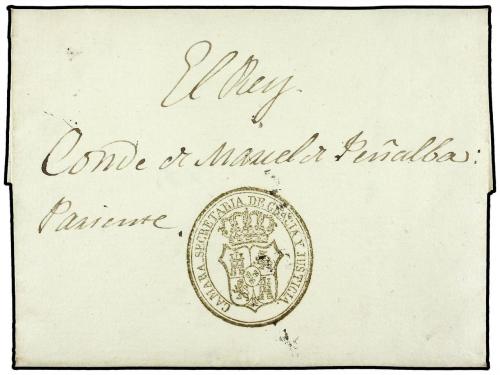 El Rey.
Conde de Maruel de Peñalba:
Pariente.
CAMARA. SECRETARIA. DE GRACIA Y JUSTICIA.